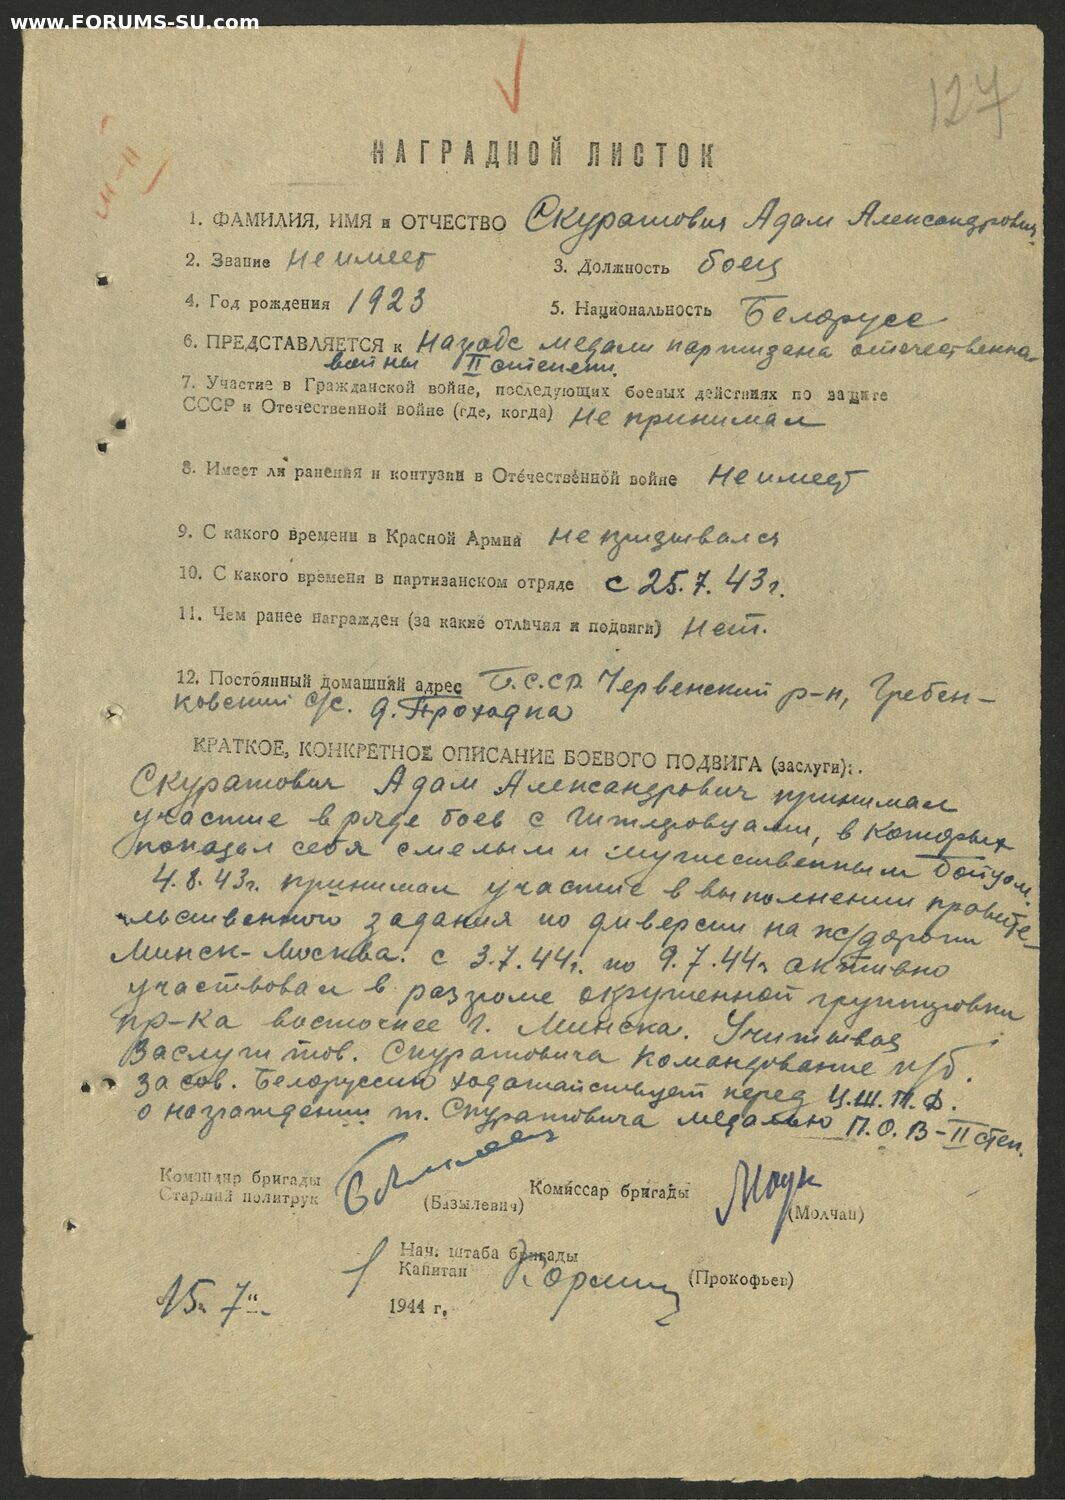 www.FORUMS-SU.com
127
НАГРАДНОЙ ЛИСТОК
1. ФАМИЛИЯ, ИМЯ и ОТЧЕСТВО Скуратович Адам Александрович.
2. Звание Не имеет 3. Должность боец
4. Год рождения 1923 5. Национальность Белорусс
6. ПРЕДСТАВЛЯЕТСЯ к медали партизана отечественна-
войны II степени.
7. Участие в Гражданской войне, последующих боевых действиях по защите
СССР и Отечественной войне (где, когда) Не принимал
8. Имеет ли ранения и контузии в Отечественной войне Не имеет
9. С какого времени в Красной Армии не призывался
10. С какого времени в партизанском отряде с 25.7.43г.
11. Чем ранее награжден (за какие отличия и подвиги) Нет.
12. Постоянный домашний адрес Червенский р-н, Гребен-
ковский с/с. д. Проходка
КРАТКОЕ, КОНКРЕТНОЕ ОПИСАНИЕ БОЕВОГО ПОДВИГА (заслуги):.
Скуратович Адам Александрович принимал
участие в ряде боев с гитлеровцами, в которых
показал себя смелым и мужественным бойцом.
4.8.43г. принимал участие в выполнении правите-
льственного задания по диверсии на ж/дороги
Минск-Москва. с 3.7.44г. по 9.7.44г активно
участвовал в разгроме окруженной группировки
пр-ка восточнее г. Минска. Учитывая
Заслуги тов. Скуратовича командование п/б.
за сов. Белоруссию ходатайствует перед Ц.Ш.П.Д.
о награждении т. Скуратовича медалью П.О.В-II степ.
Командир бригады
Старший политрук (Базылевич) Комиссар бригады (Молчан)
Нач. штаба бригады
Капитан (Прокофьев)
15 7 1944 г.